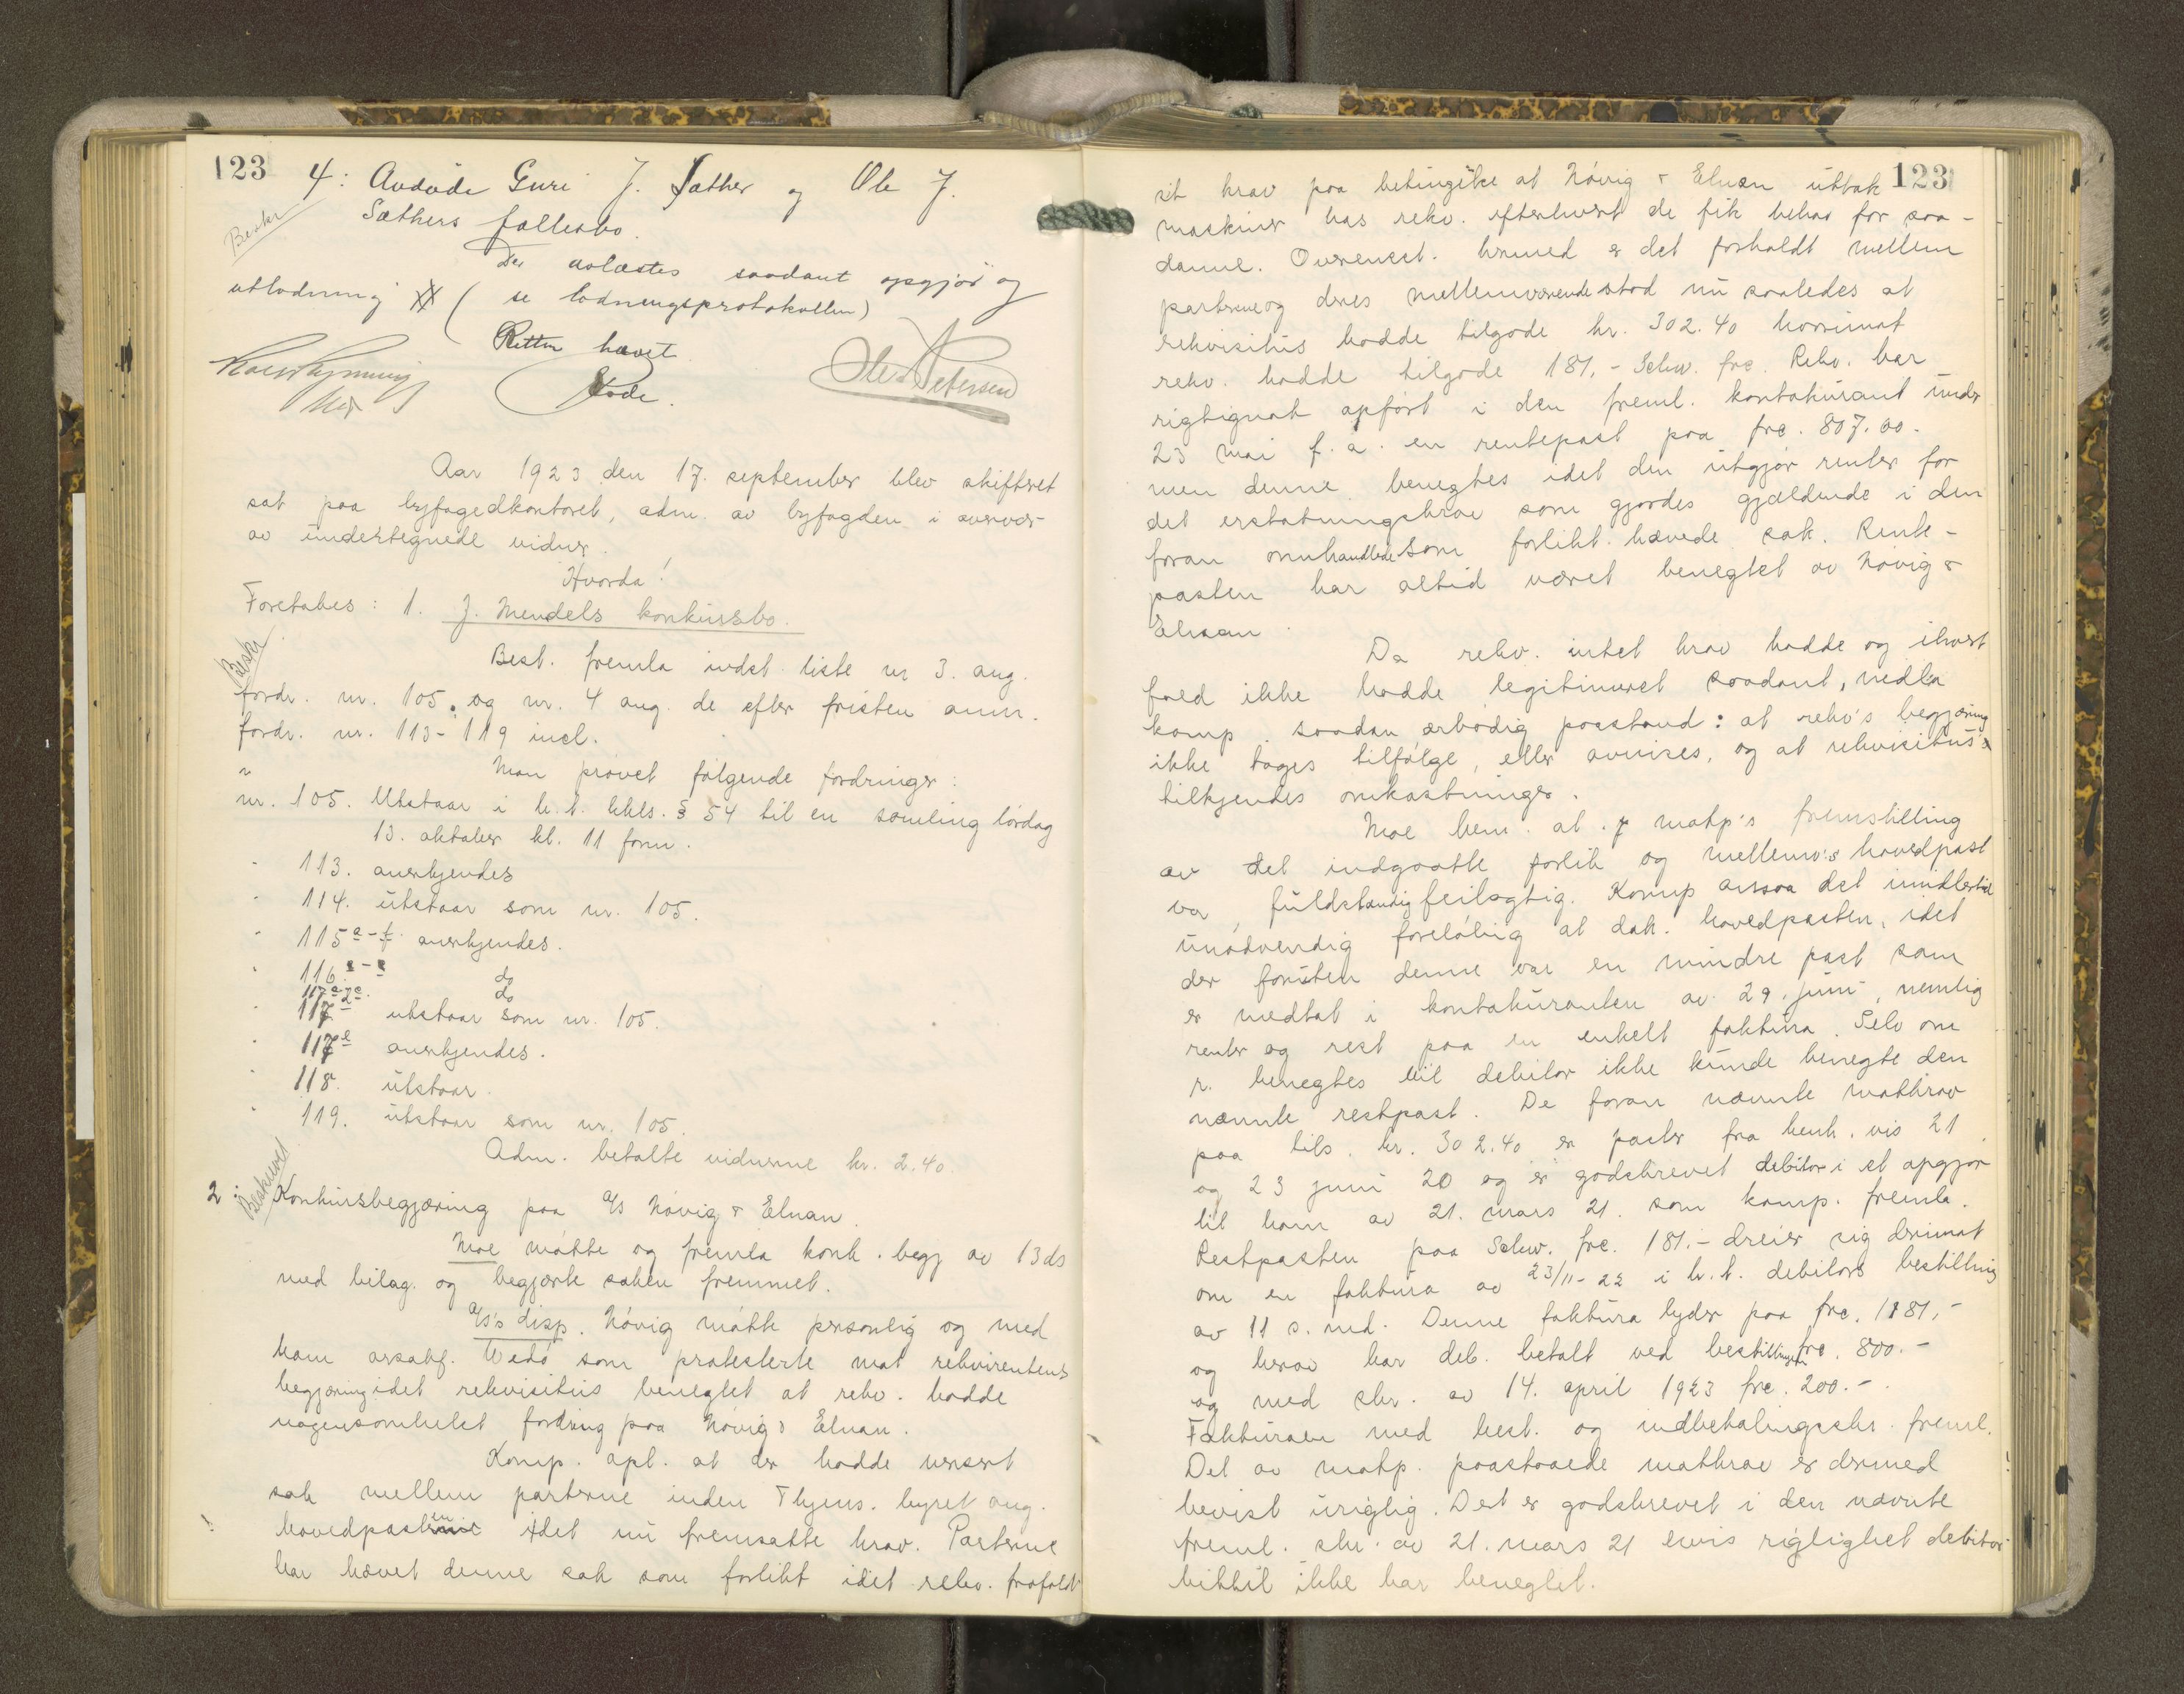 123
4: Avdøde Guri J. Sæther og Ole J.
Sæthers fællesbo.
Beskr
Der avlæstes saadant opgjør og
utlodning (se lodningsprotokollen)
Retten hævet
Ole Petersen
Aar 1923 den 17. september blev skifteret
sat paa byfogedkontoret, adm. av byfogden i overvær
av undertegnede vidner.
Hvorda!
Foretokes: 1. J. Mendels konkursbo.
Beskr
Best. fremla indst. liste nr 3. ang.
fordr. nr. 105. og nr. 4 ang. de efter fristen anm.
fordr. nr. 113-119 incl.
Man prøvet følgende fordringer:
nr. 105. Utstaar i h.t. kkls. § 54 til en samling lørdag
13. oktober kl. 11 form.
" 113. anerkjendes
" 114. utstaar som nr. 105.
" 115 a-f anerkjendes.
" 116 do
117 do
" 117 utstaar som nr. 105.
" 117 e anerkjendes.
" 118. utstaar.
" 119. utstaar som nr. 105.
Adm. betalte vidnerne kr. 2.40.
Beskrevet
2: Konkursbegjæring paa A/S Høvig & Elnan.
Moe møtte og fremla konk. begj av 13 ds
med bilag. og begjærte saken fremmet.
A/S's disp. Høvig møtte personlig og med
ham orsakf. Wedø som protesterte mot rekvirentens
begjæring idet rekvisitus benegtet at rekv. hadde
nogensomhelst fordring paa Høvig & Elnan.
Komp. opl. at der hadde versert
sak mellem parterne inden Thjems. byret ang.
hovedposten i det nu fremsatte krav. Parterne
har hævet denne sak som forlikt idet rekv. frafaldt
123
sit krav paa betingelse at Høvig & Elnan uttok
maskiner hos rekv. efterhvert de fik behov for saa-
danne. Overenst. hermed er det forholdt mellem
parterne og deres mellemværende stod nu saaledes at
rekvisitus hadde tilgode kr. 302.40 hvorimot
rekv. hadde tilgode 181,- Schw. frc. Rekv. har
rigtignok opført i den freml. kontokurant under
23 mai f.a. en rentepost paa frc. 807.00.
men denne benegtes idet den utgjør renter for
det erstatningskrav som gjordes gjældende i den
foran omhandlede som forlikt hævede sak. Rente-
posten har altid været benegtet av Høvig &
Elnan.
Da rekv. intet krav hadde og ihvert
fald ikke hadde legitimert saadant, nedla
komp. saadan ærbødig paastand: at rekv's begjæring
ikke tages tilfølge, eller avvises, og at rekvisitus
tilkjendes omkostninger.
Moe bem. at motp's fremstilling
av det indgaatte forlik og mellemv's hovedpost
var fuldstændig feilagtig. Komp ansaa det imidlertid
unødvendig foreløbig at dok. hovedposten, idet
der foruten denne var en mindre post som
er medtat i kontokuranten av 29. juni, nemlig
renter og rest paa en enkelt faktura. Selv om
r. benegtes vil debitor ikke kunde benegte den
nævnte restpost. De foran nævnte motkrav
paa tils. kr. 302.40 er poster fra henh. vis 21
og 23 juni 20 og er godskrevet debitor i et opgjør
til ham av 21. mars 21. som komp. fremla.
Restposten paa Schw. frc. 181.- dreier sig derimot
om en faktura av 23/11-22 i h.t. debitors bestilling
av 11 s. md. Denne faktura lyder paa frc. 1181,-
og herav har deb. betalt ved bestillingen frc. 800.-
og med skr. av 14. april 1923 frc. 200.-
Fakturaen med best. og indbetalingsskr. freml.
Det av motp. paastaaede motkrav er dermed
bevist uriglig. Det er godskrevet i den nævnte
freml. skr. av 21. mars 21 hvis riglighet debitor
hittil ikke har benegtet.